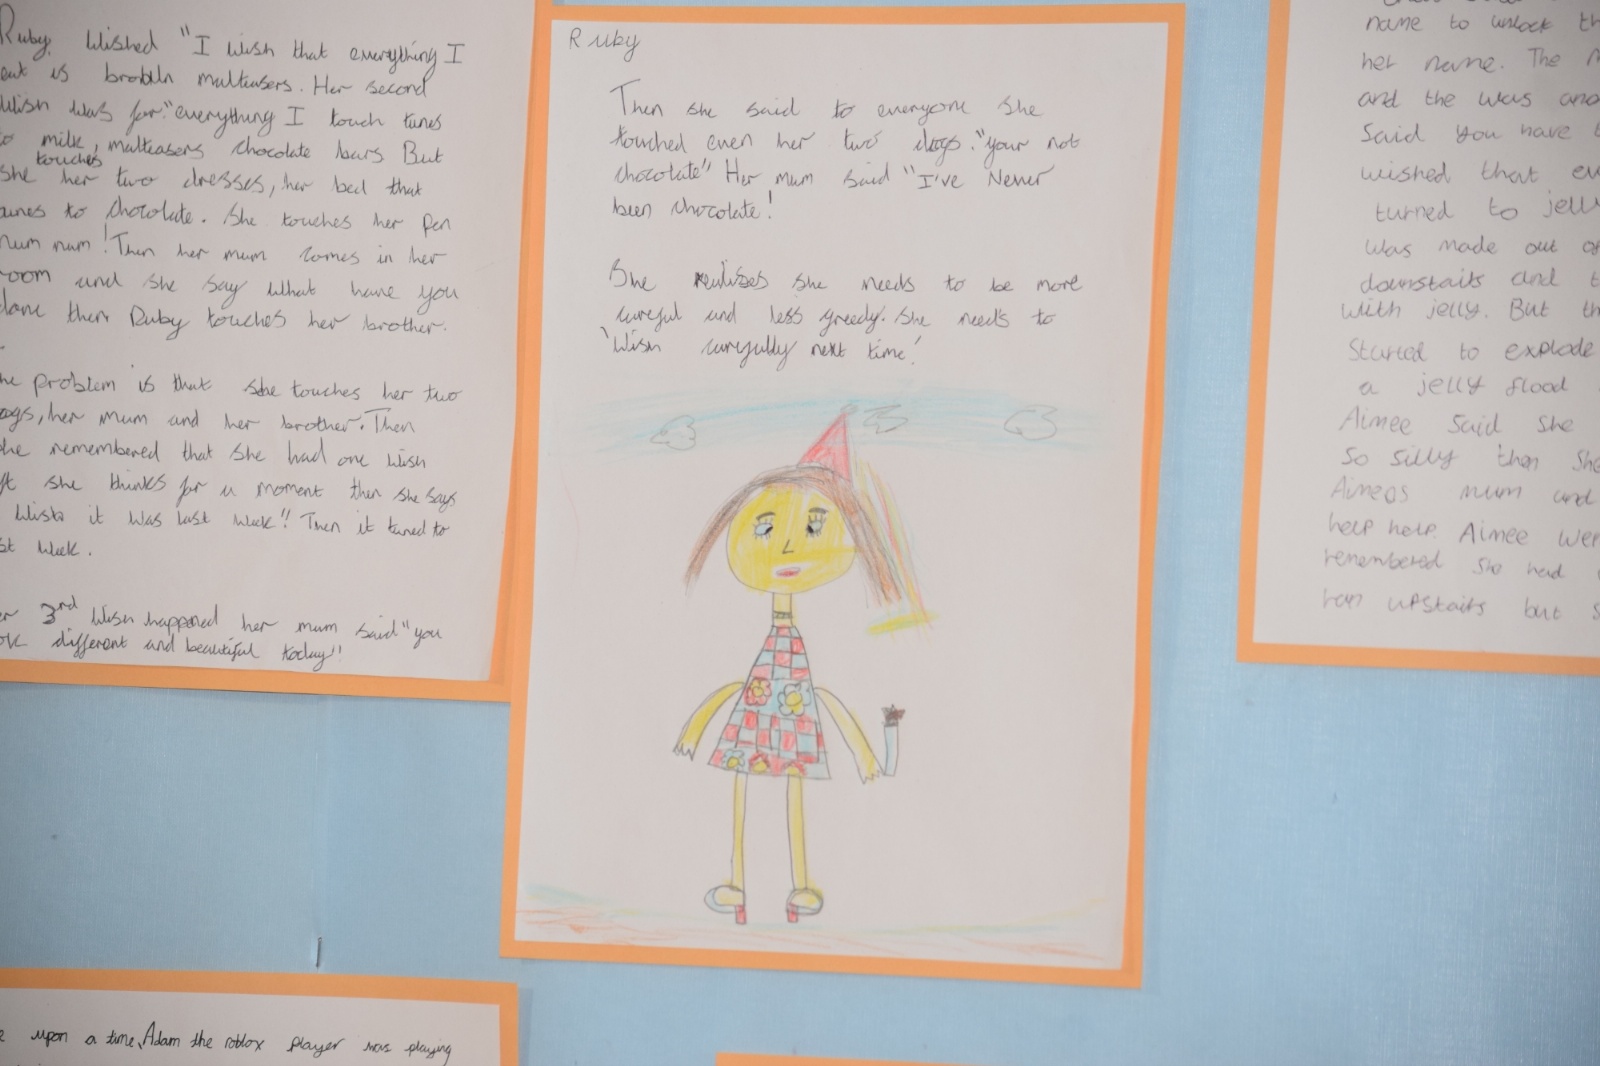 Ruby Wished "I Wish that everything I
eat is brobiln malteasers. Her second
Wish was for "everything I touch tunes
to milk, malteasers chocolate bars But
touches
she her two dresses, her bed that
tunes to chocolate. She touches her Pen
num num! Then her mum comes in her
room and she say what have you
done then Ruby touches her brother.
he problem is that she touches her two
ogs, her mum and her brother. Then
he remembered that she had one wish
ft she thinks for a moment then she says
Wish it was last week" Then it tuned to
st week.
er 3rd Wish happened her mum said "you
ok different and beautiful today"!
Ruby
Then she said to everyone she
touched even her two dogs. "your not
chocolate" Her mum said "I've Never
been chocolate!
She realises she needs to be more
careful and less greedy. She needs to
'Wish carefully next time!'
name to unlock th
her name. The
and the was ano
Said you have
wished that ev
turned to jelly
was made out of
downstaits and t
with jelly. But th
Started to explode
a jelly flood
Aimee Said She
So silly then She
Aimeas mum and
help help. Aimee wen
remembered She had
ran upstairs but s
e upon a time, Adam the roblox player was playing